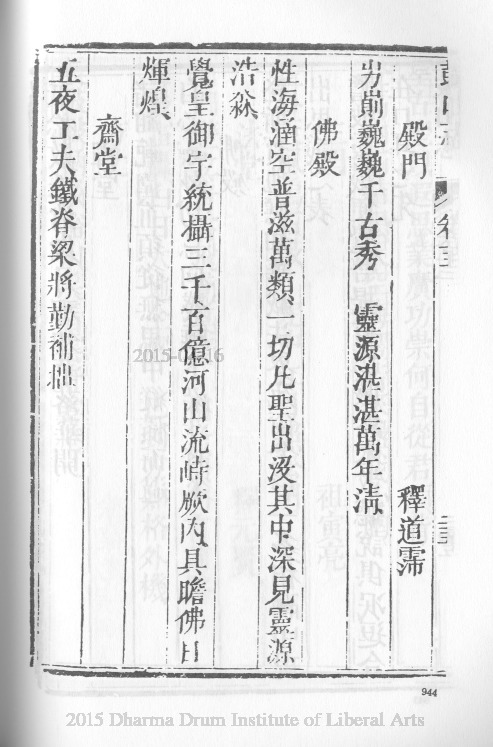 殿門
釋道霈
屴崱巍巍千古秀　靈源湛湛萬年清
佛殿
性海涵空普滋萬類一切凡聖出沒其中深見靈源
浩淼
覺皇御宇統攝三千百億河山流峙厥內具瞻佛日
輝煌
齋堂
五夜工夫鐵脊梁將勤補拙
944
2015 Dharma Drum Institute of Liberal Arts